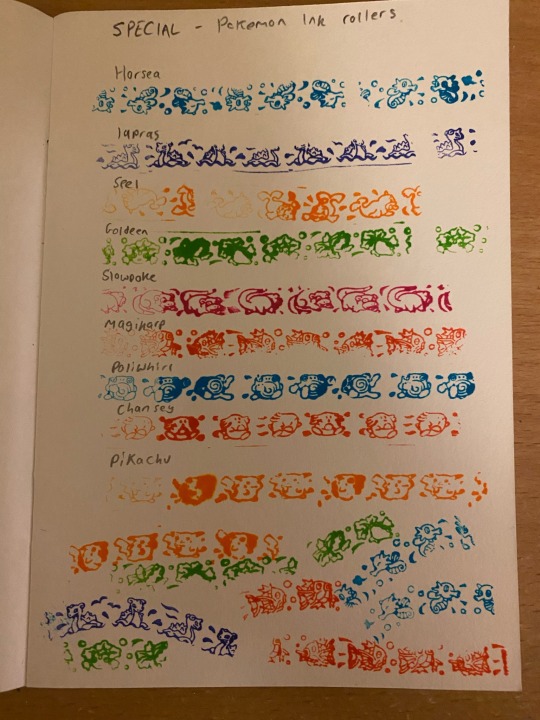 SPECIAL - Pokemon Ink rollers.
Horsea
lapras
Seel
Goldeen
Slowpoke
Magikarp
Poliwhirl
Chansey
Pikachu